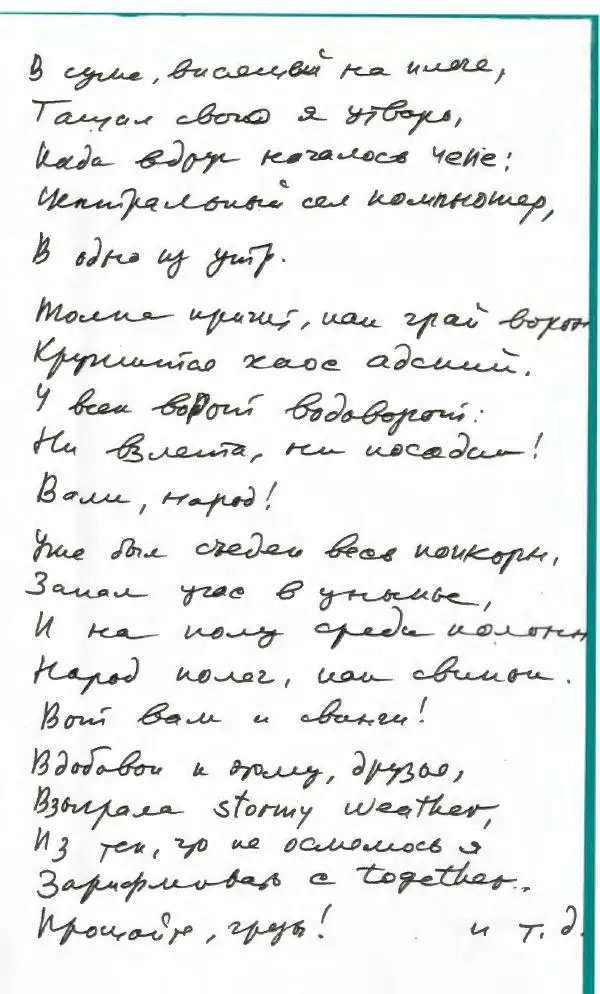 В суме, висящей на плече,
Тащил свою я утварь,
Когда вдруг началось ЧеПе:
Центральный сел компьютер,
В одно из утр.
Толпа кричит, как грай ворон
Кружится хаос адский.
У всех ворот водоворот:
Ни взлета, ни посадки!
Вали, народ!
Уже был съеден весь попкорн,
Запал угас в унынье,
И на полу среди колонн
Народ полег, как свиньи.
Вот вам и сванги!
Вдобавок к этому, друзья,
Взыграла stormy weather,
Из тех, что не осмелюсь я
Зарифмовать с together..
Прощайте, грезы! и т. д.